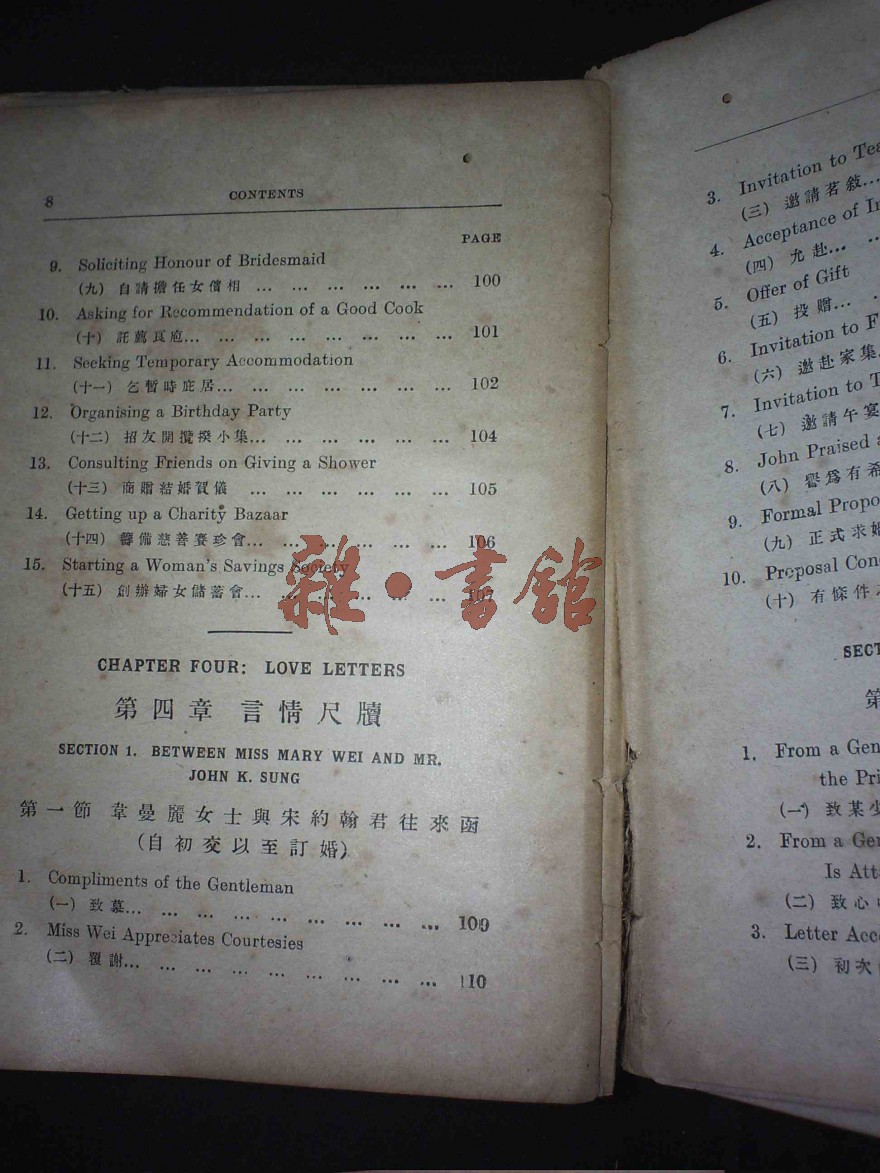 8
CONTENTS
PAGE
9. Soliciting Honour of Bridesmaid
(九) 自請擔任女儐相 ... ... ... ... ... ... 100
10. Asking for Recommendation of a Good Cook
(十) 託薦良庖... ... ... ... ... ... ... 101
11. Seeking Temporary Accommodation
(十一) 乞暫時庇居... ... ... ... ... ... 102
12. Organising a Birthday Party
(十二) 招友開攬揆小集... ... ... ... ... ... 104
13. Consulting Friends on Giving a Shower
(十三) 商贈結婚賀儀 ... ... ... ... ... ... 105
14. Getting up a Charity Bazaar
(十四) 籌備慈善賽珍會... ... ... ... ... 106
15. Starting a Woman's Savings Society
(十五) 創辦婦女儲蓄會... ... ... ... ... ... 107
雜·書館
CHAPTER FOUR: LOVE LETTERS
第四章 言情尺牘
SECTION 1. BETWEEN MISS MARY WEI AND MR.
JOHN K. SUNG
第一節 韋曼麗女士與宋約翰君往來函
(自初交以至訂婚)
1. Compliments of the Gentleman
(一) 致慕... ... ... ... ... ... ... ... 109
2. Miss Wei Appreciates Courtesies
(二) 覆謝... ... ... ... ... ... ... ... 110
3. Invitation to Tea
(三) 邀請茗敍...
4. Acceptance of In
(四) 允赴... ...
5. Offer of Gift
(五) 投贈... ...
6. Invitation to F
(六) 邀赴家集
7. Invitation to T
(七) 邀請午宴
8. John Praised a
(八) 譽爲有希
9. Formal Propo
(九) 正式求婚
10. Proposal Con
(十) 有條件
SECT
第
1. From a Gen
the Pri
(一) 致某少
2. From a Gen
Is Att
(二) 致心
3. Letter Acce
(三) 初次